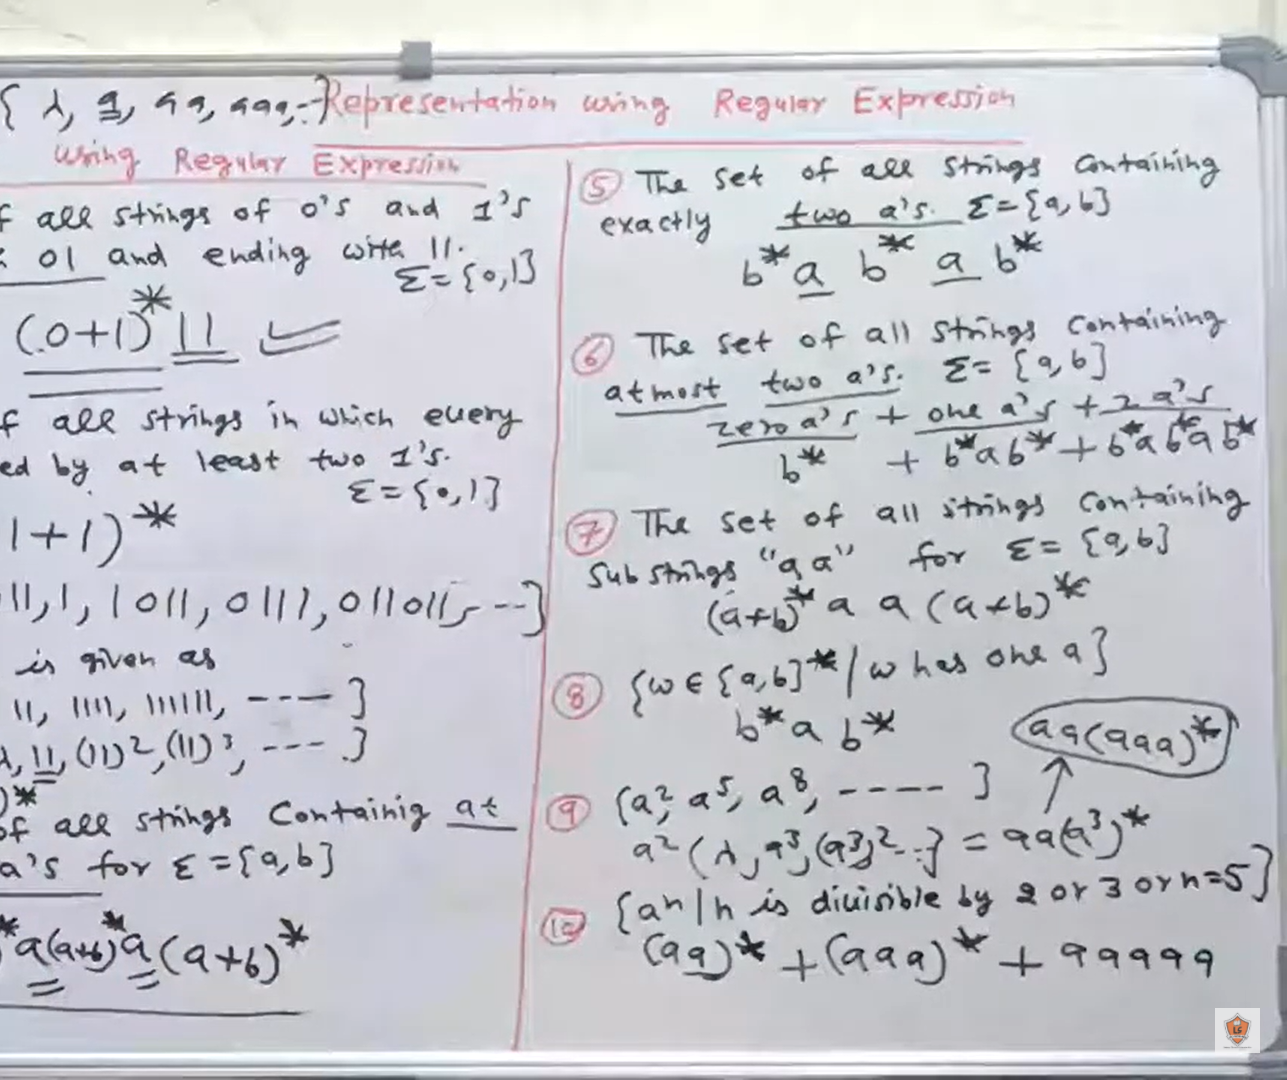 { λ, a, aa, aaa, --} Representation using Regular Expression
using Regular Expression
f all strings of 0's and 1's
01 and ending with 11.
Σ={0,1}
(0+1)* 11
f all strings in which every
ed by at least two 1's.
Σ={0,1}
1+1)*
11, 1, 1011, 0111, 011011, ---}
is given as
11, 1111, 111111, ---- }
λ, 11, (11)², (11)³, --- }
)*
of all strings Containig at
a's for Σ={a,b}
* a(a+b)* a (a+b)*
⑤ The set of all strings containing
exactly two a's. Σ={a,b}
b* a b* a b*
⑥ The set of all strings containing
atmost two a's. Σ= {a,b}
zero a's + one a's + 2 a's
b* + b*ab* + b*ab*ab*
⑦ The set of all strings containing
substrings "aa" for Σ= {a,b}
(a+b)* a a (a+b)*
⑧ {w ∈ {a,b}* / w has one a}
b* a b*
aa(aaa)*
⑨ {a², a⁵, a⁸, ---- }
a² {λ, a³, (a³)² --} = aa(a³)*
⑩ {aⁿ/n is divisible by 2 or 3 or n=5}
(aa)* + (aaa)* + aaaaa
LS